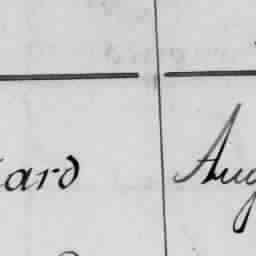 ard Aug